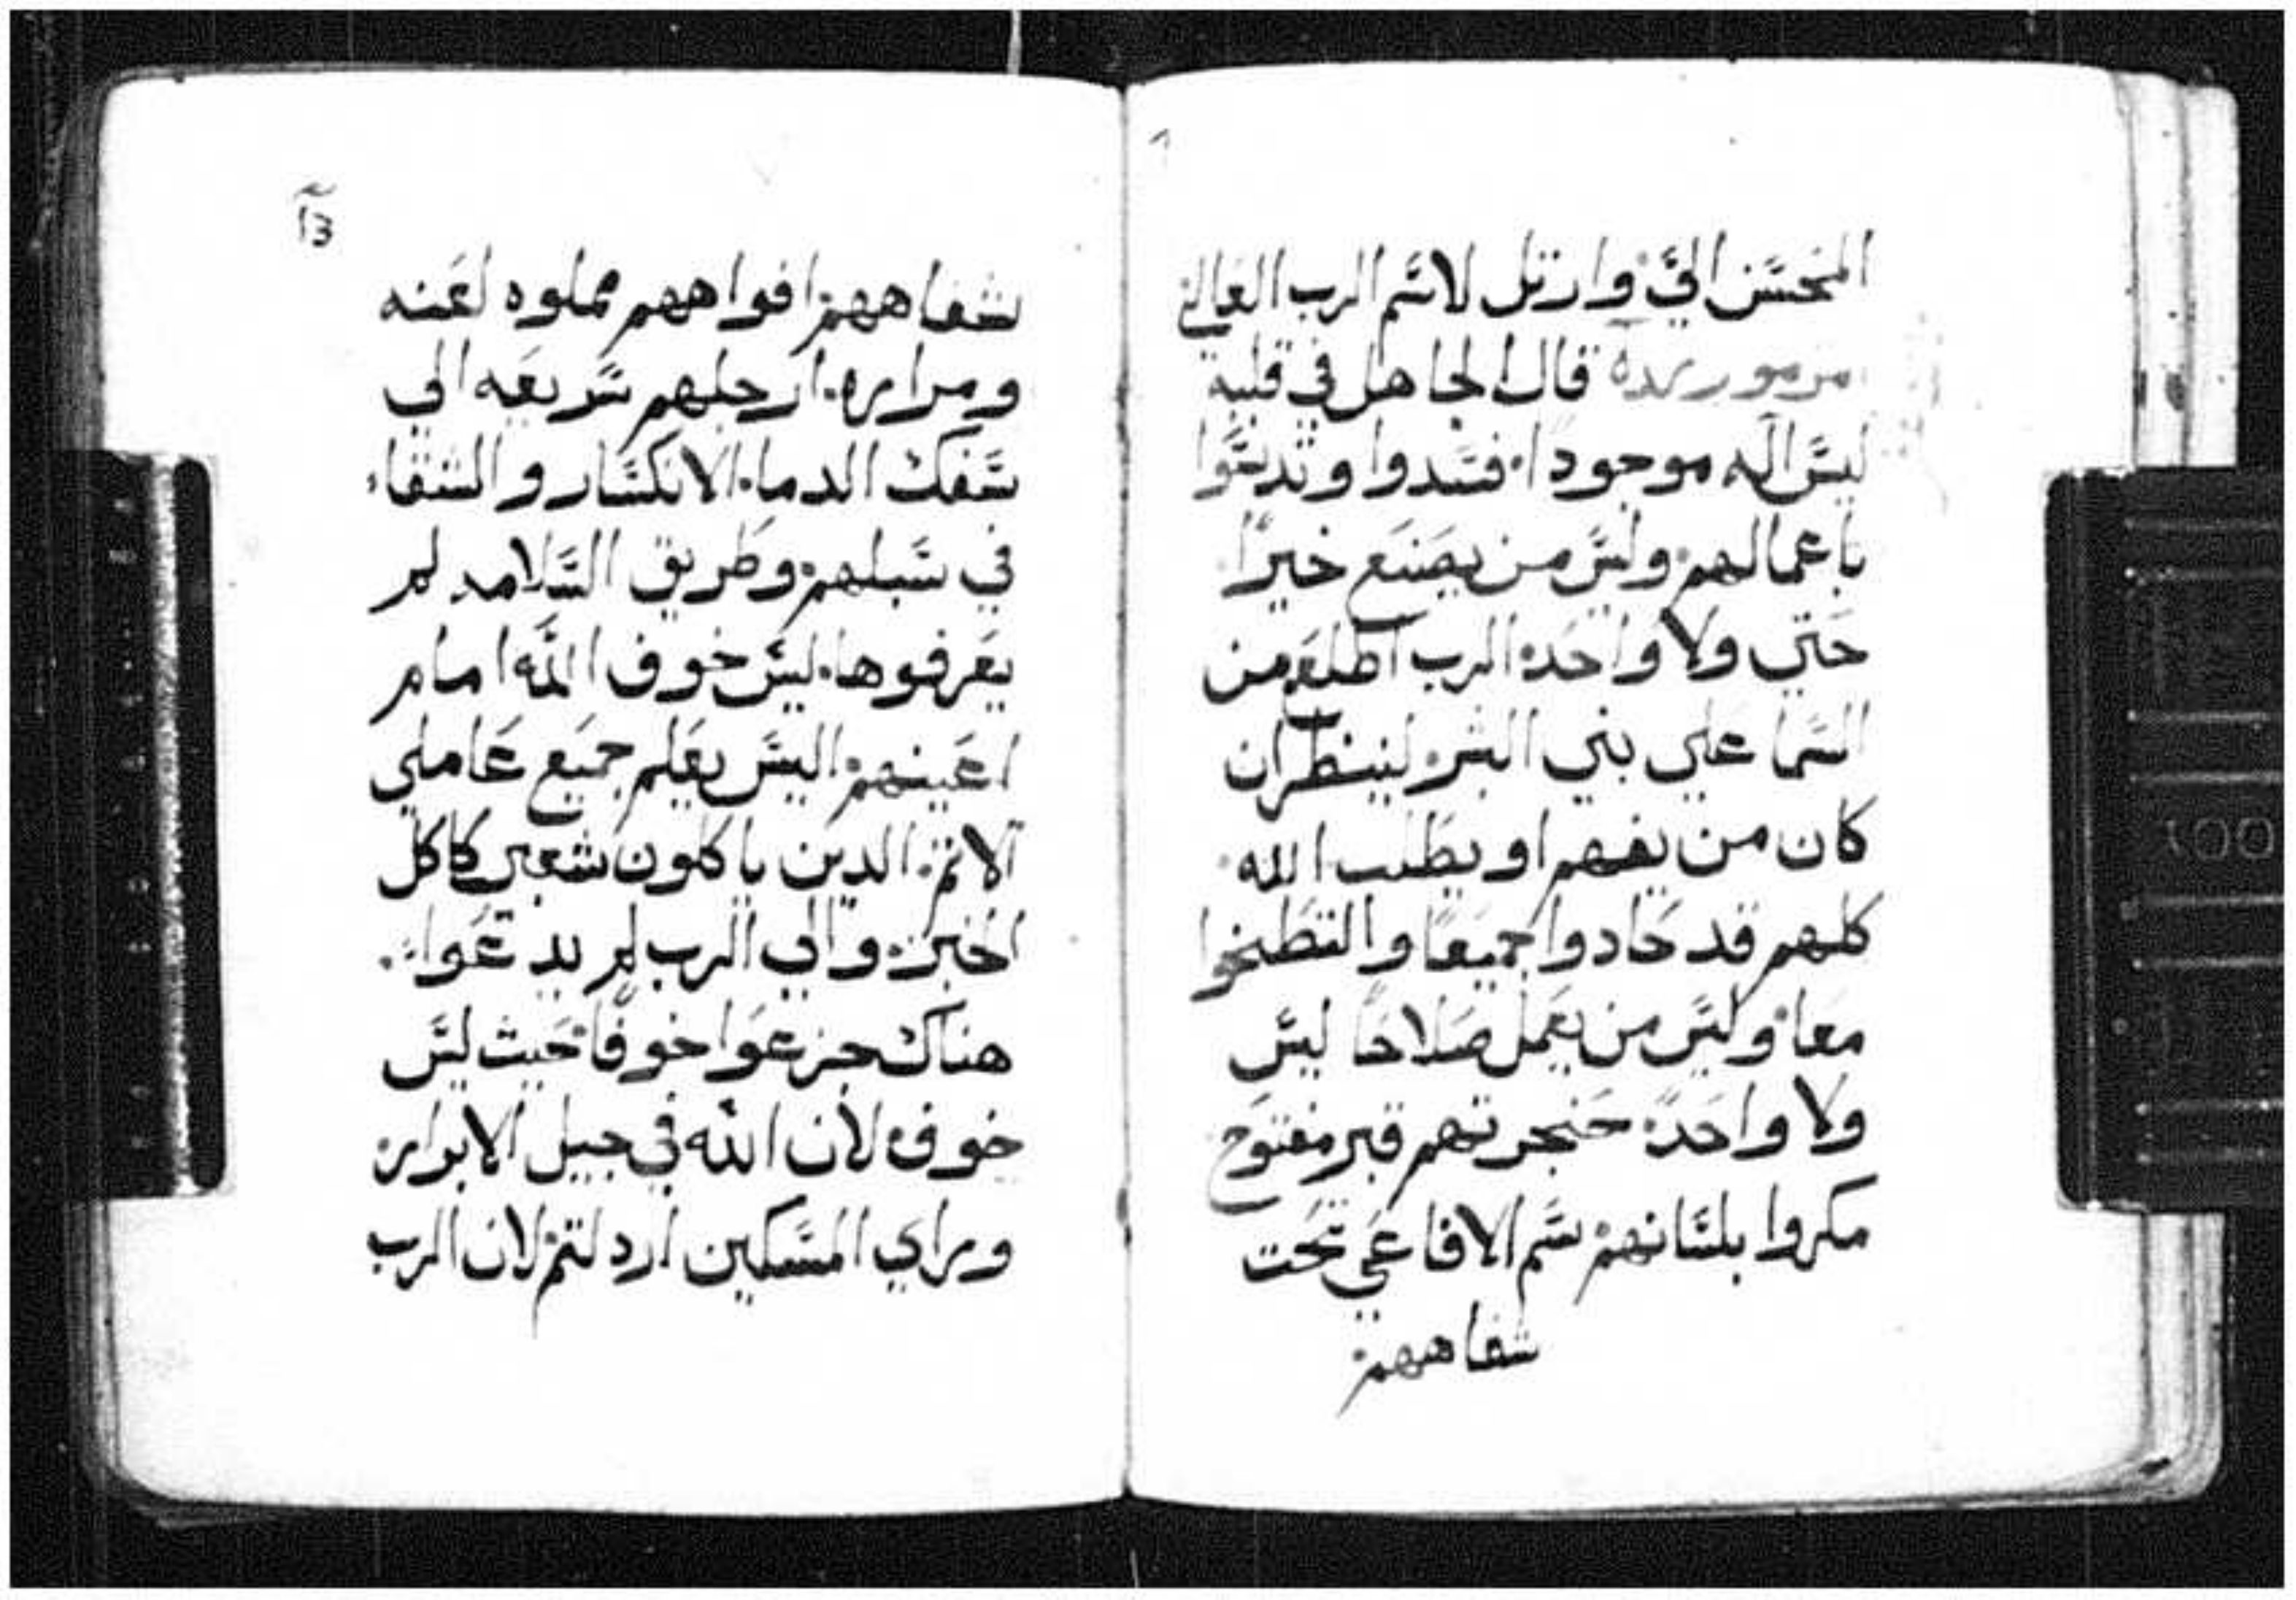 المحسن الي وارتل لاسم الرب العالي
مزمور قال الجاهل في قلبه
ليس اله موجودا. فسدوا وتدنسوا
باعمالهم وليس من يصنع خيرًا
حتي ولا واحد الرب اطلع من
السما علي بني البشر لينظر ان
كان من يفهم او يطلب الله
كلهم قد حادوا جميعًا والتطخوا
معا وليس من يعمل صلاحًا ليس
ولا واحد حنجرتهم قبر مفتوح
مكروا بلسانهم سم الافاعي تحت
شفاههم
شفاههم افواههم مملوه لعنه
ومراره. ارجلهم سريعه الي
سفك الدما. الانكسار والشقاء
في سبلهم وطريق السلامه لم
يعرفوها. ليس خوف الله امام
اعينهم اليس يعلم جميع عاملي
الاثم الدين ياكلون شعبي كاكل
الخبز والي الرب لم يدعوا
هناك جزعوا خوفًا حيث ليس
خوف لان الله في جيل الابرار
وراي المسكين اردلتم لان الرب